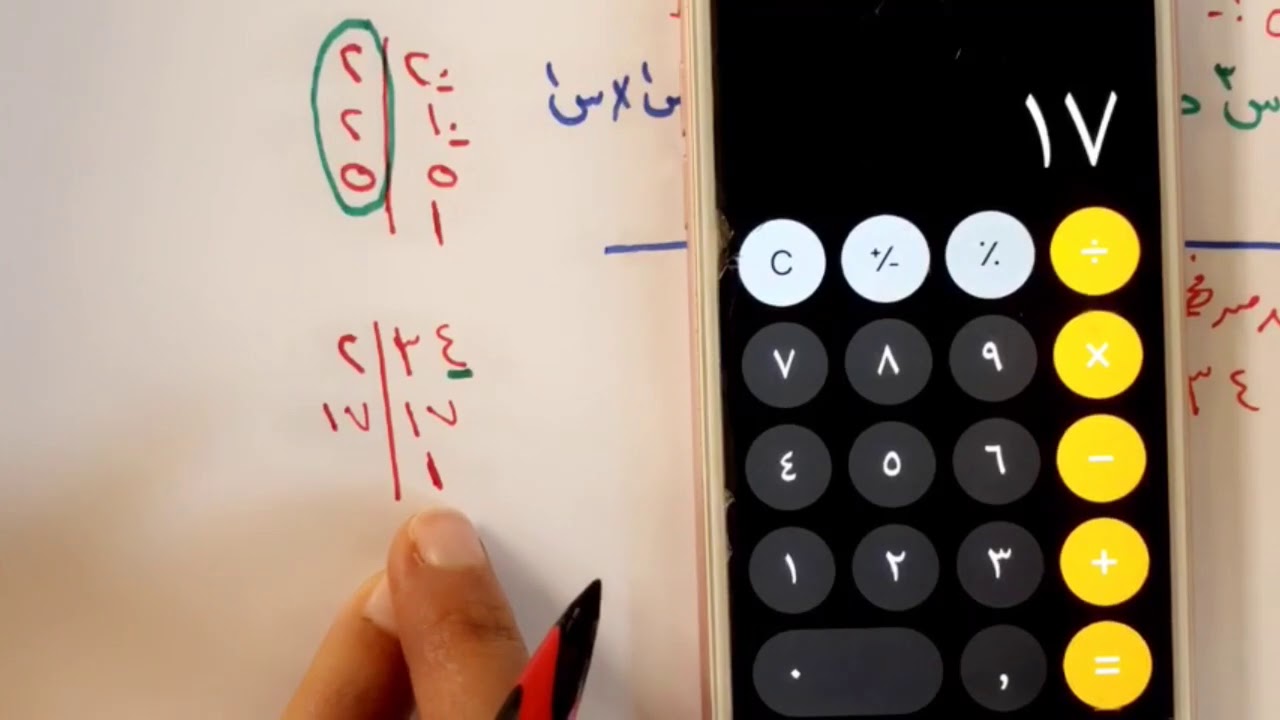 ٢٠ | ٢
١٠ | ٢
٥ | ٥
١
٣٤ | ٢
١٧ | ١٧
١
س١ × س١
س٣
٣٤
١٧
C +/- ٪ ÷
٧ ٨ ٩ ×
٤ ٥ ٦ −
١ ٢ ٣ +
٠ , =